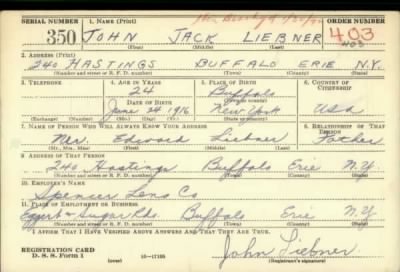 SERIAL NUMBER 1. NAME (Print) ORDER NUMBER
350 JOHN JACK LIEBNER 403
403
(First) (Middle) (Last)
2. ADDRESS (Print)
240 HASTINGS BUFFALO ERIE N.Y.
(Number and street or R. F. D. number) (Town) (County) (State)
3. TELEPHONE 4. AGE IN YEARS 5. PLACE OF BIRTH 6. COUNTRY OF CITIZENSHIP
24 Buffalo
DATE OF BIRTH (Town or county)
June 24 1916 New York USA
(Exchange) (Number) (Mo.) (Day) (Yr.) (State or country)
7. NAME OF PERSON WHO WILL ALWAYS KNOW YOUR ADDRESS 8. RELATIONSHIP OF THAT PERSON
Mr. Edward Liebner Father
(Mr., Mrs., Miss) (First) (Middle) (Last)
9. ADDRESS OF THAT PERSON
240 Hastings Buffalo Erie N.Y.
(Number and street or R. F. D. number) (Town) (County) (State)
10. EMPLOYER'S NAME
Spencer Lens Co
11. PLACE OF EMPLOYMENT OR BUSINESS
Eggert & Sugar Rds. Buffalo Erie N.Y.
(Number and street or R. F. D. number) (Town) (County) (State)
I AFFIRM THAT I HAVE VERIFIED ABOVE ANSWERS AND THAT THEY ARE TRUE.
REGISTRATION CARD
D. S. S. Form 1 (over) 16—17105 John Liebner
(Registrant's signature)